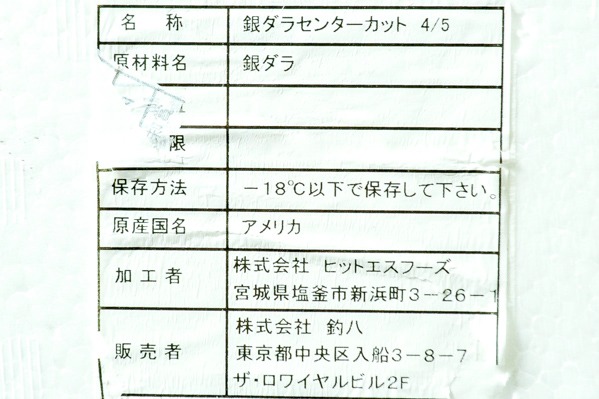 名称 銀ダラセンターカット 4/5
原材料名 銀ダラ
限
保存方法 −18℃以下で保存して下さい。
原産国名 アメリカ
加工者 株式会社 ヒットエスフーズ
宮城県塩釜市新浜町3−26−1
販売者 株式会社 釣八
東京都中央区入船3−8−7
ザ・ロワイヤルビル2F